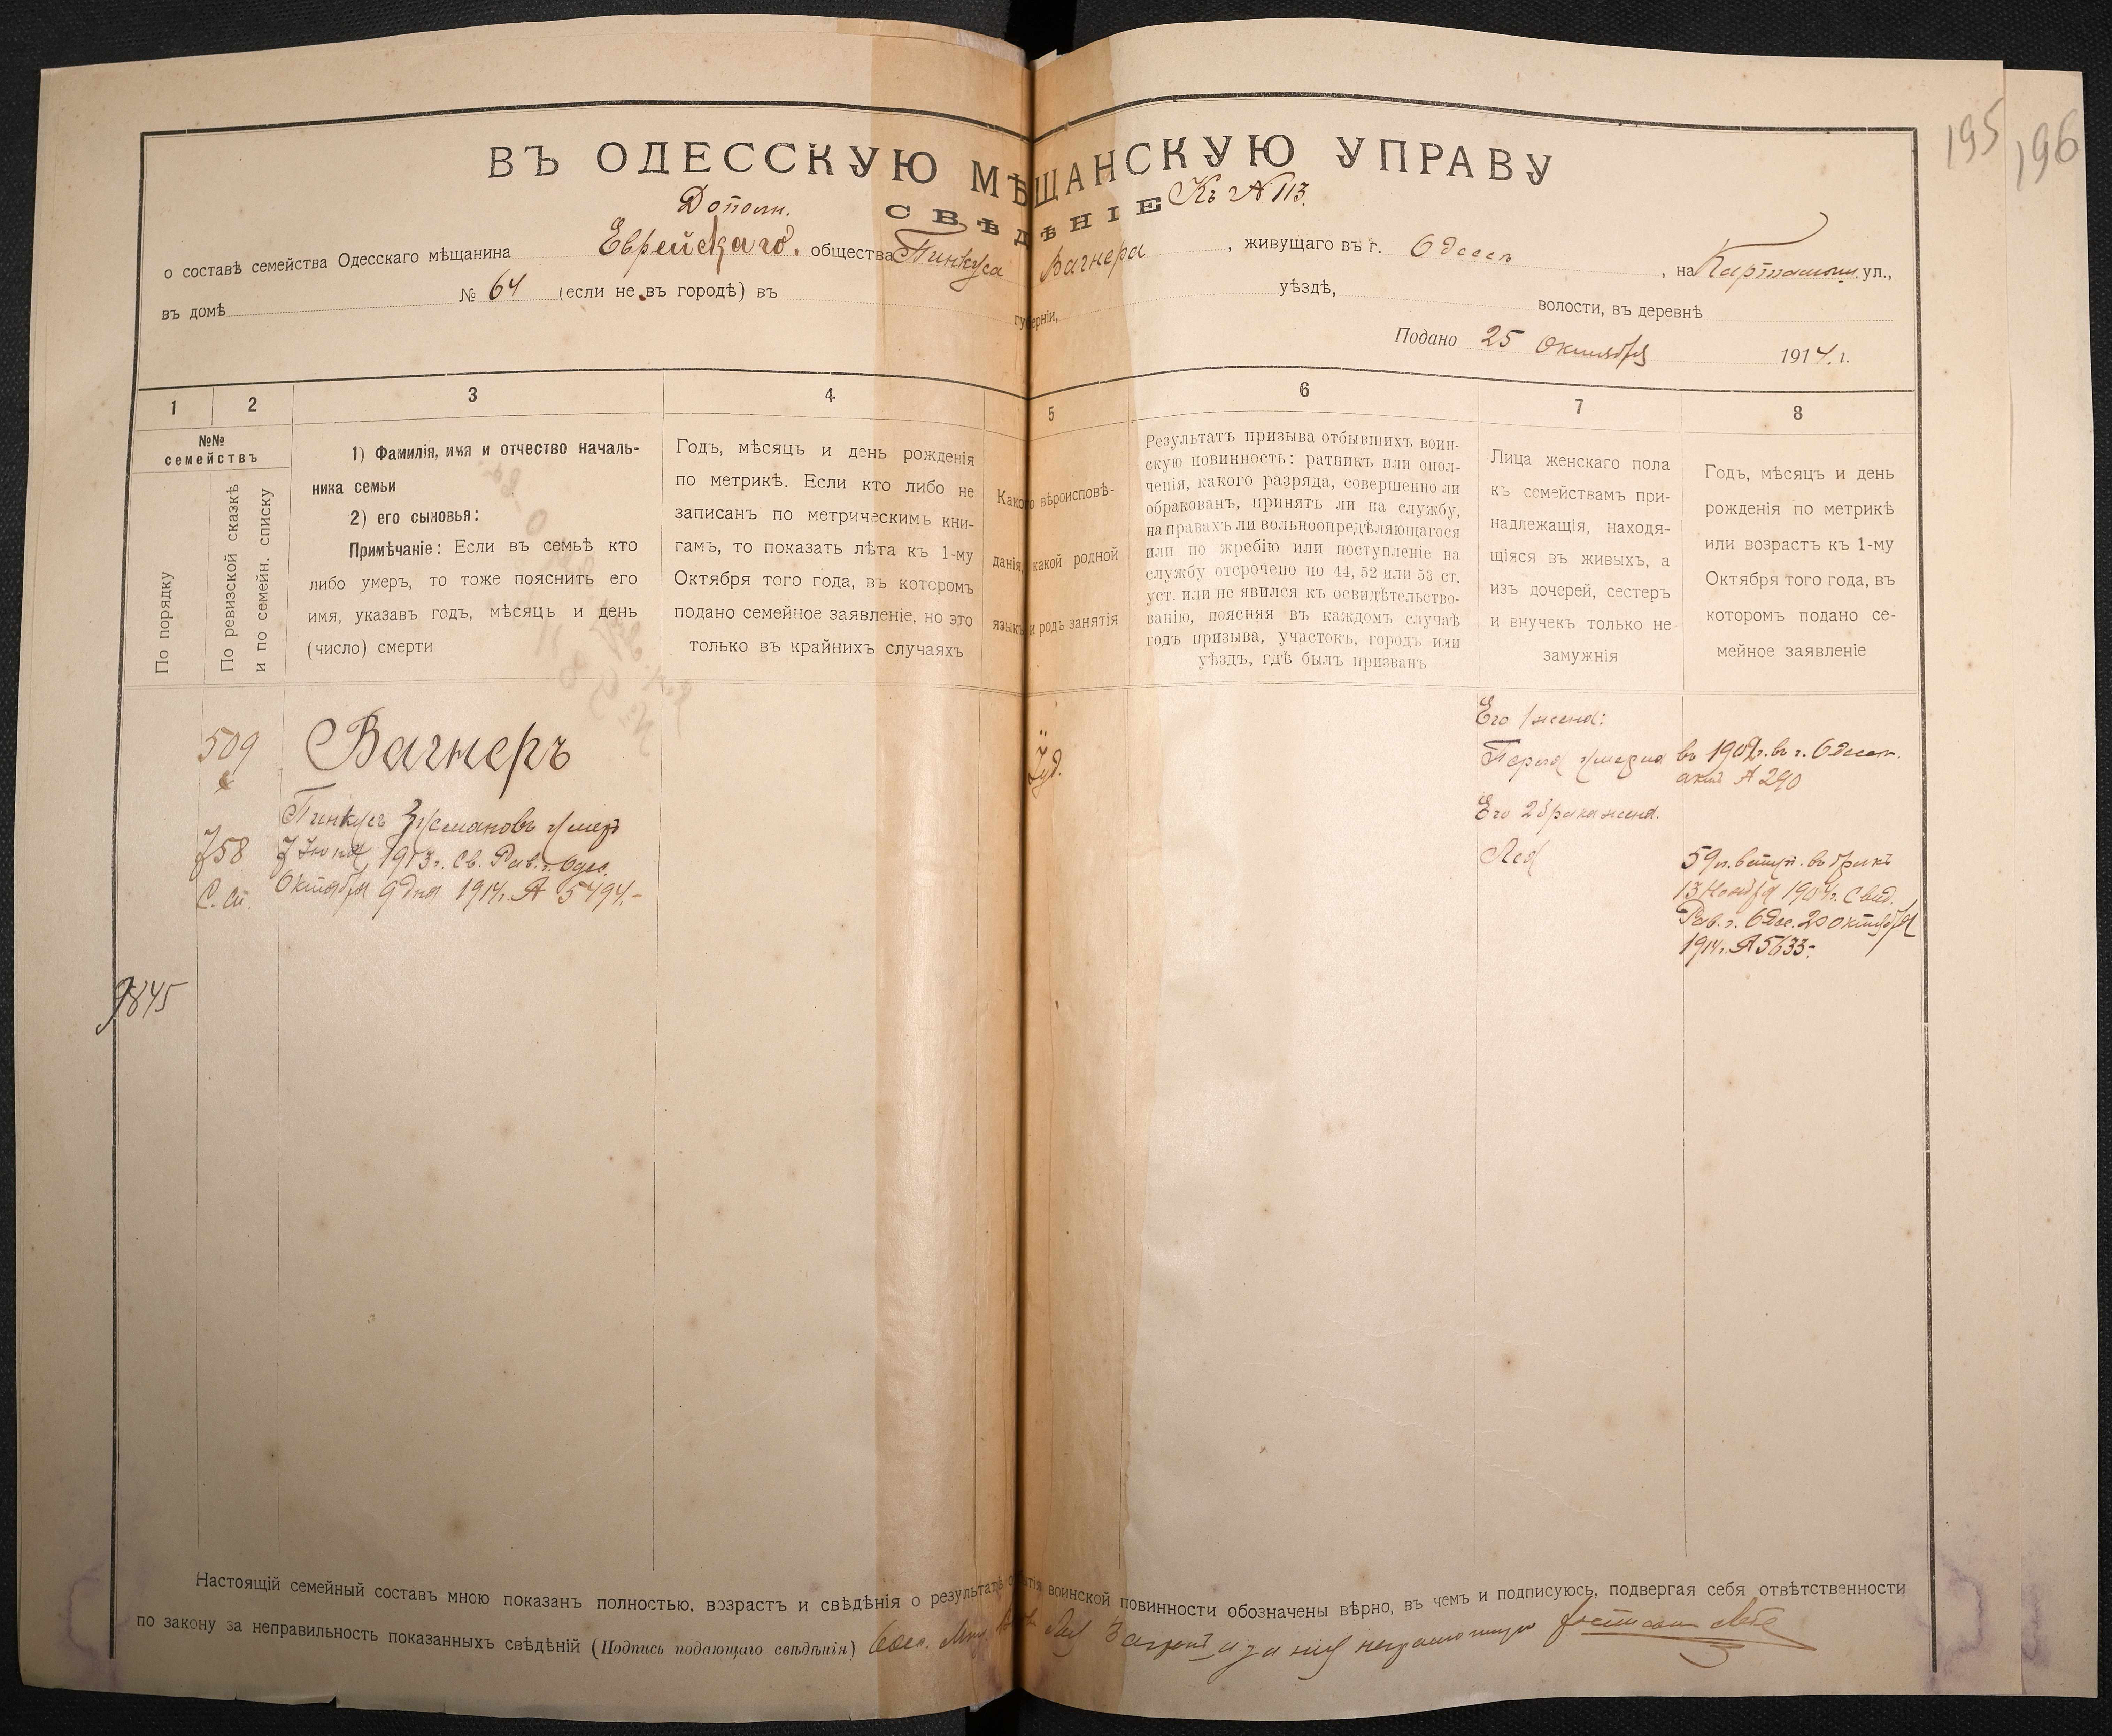 195
196
ВЪ ОДЕССКУЮ МѢЩАНСКУЮ УПРАВУ
Дополн. СВѢДѢНІЕ Къ № 113.
о составѣ семейства Одесскаго мѣщанина Еврейскаго общества Пинкуса Вагнера, живущаго въ г. Одессѣ, на ул.,
въ домѣ № 64 (если не въ городѣ) въ губерніи, уѣздѣ, волости, въ деревнѣ
Подано 25 Октября 1914 г.
1 2 3 4 5 6 7 8
№№
семействъ
По порядку
По ревизской сказкѣ
и по семейн. списку
1) Фамилія, имя и отчество началь-
ника семьи
2) его сыновья:
Примѣчаніе: Если въ семьѣ кто
либо умеръ, то тоже пояснить его
имя, указавъ годъ, мѣсяцъ и день
(число) смерти
Годъ, мѣсяцъ и день рожденія
по метрикѣ. Если кто либо не
записанъ по метрическимъ кни-
гамъ, то показать лѣта къ 1-му
Октября того года, въ которомъ
подано семейное заявленіе, но это
только въ крайнихъ случаяхъ
Какого вѣроисповѣ-
данія, какой родной
языкъ и родъ занятія
Результатъ призыва отбывшихъ воин-
скую повинность: ратникъ или опол-
ченія, какого разряда, совершенно ли
обракованъ, принятъ ли на службу,
на правахъ ли вольноопредѣляющагося
или по жребію или поступленіе на
службу отсрочено по 44, 52 или 53 ст.
уст. или не явился къ освидѣтельство-
ванію, поясняя въ каждомъ случаѣ
годъ призыва, участокъ, городъ или
уѣздъ, гдѣ былъ призванъ
Лица женскаго пола
къ семействамъ при-
надлежащія, находя-
щіяся въ живыхъ, а
изъ дочерей, сестеръ
и внучекъ только не
замужнія
Годъ, мѣсяцъ и день
рожденія по метрикѣ
или возрастъ къ 1-му
Октября того года, въ
которомъ подано се-
мейное заявленіе
509
758
С. сп.
9845
Вагнеръ
Пинкусъ Зусмановъ умеръ
7 1913 г. Св. Рав. г. Одес.
Октября 9 дня 1914 г. № 5494.-
Іуд.
Его жена:
Перля умерла въ 1902 г. въ г. Одессѣ.
актъ № 290
Его 2 брака жена.
Лея
59 л. вступ. въ бракъ
13 Ноября Свид.
Рав. г. Одес. 20 Октября
1914 г. № 5633-
Настоящій семейный составъ мною показанъ полностью, возрастъ и свѣдѣнія о результатѣ отбытія воинской повинности обозначены вѣрно, въ чемъ и подписуюсь, подвергая себя отвѣтственности
по закону за неправильность показанныхъ свѣдѣній (Подпись подающаго свѣдѣнія) Лея Вагнеръ а за нея неграмотную